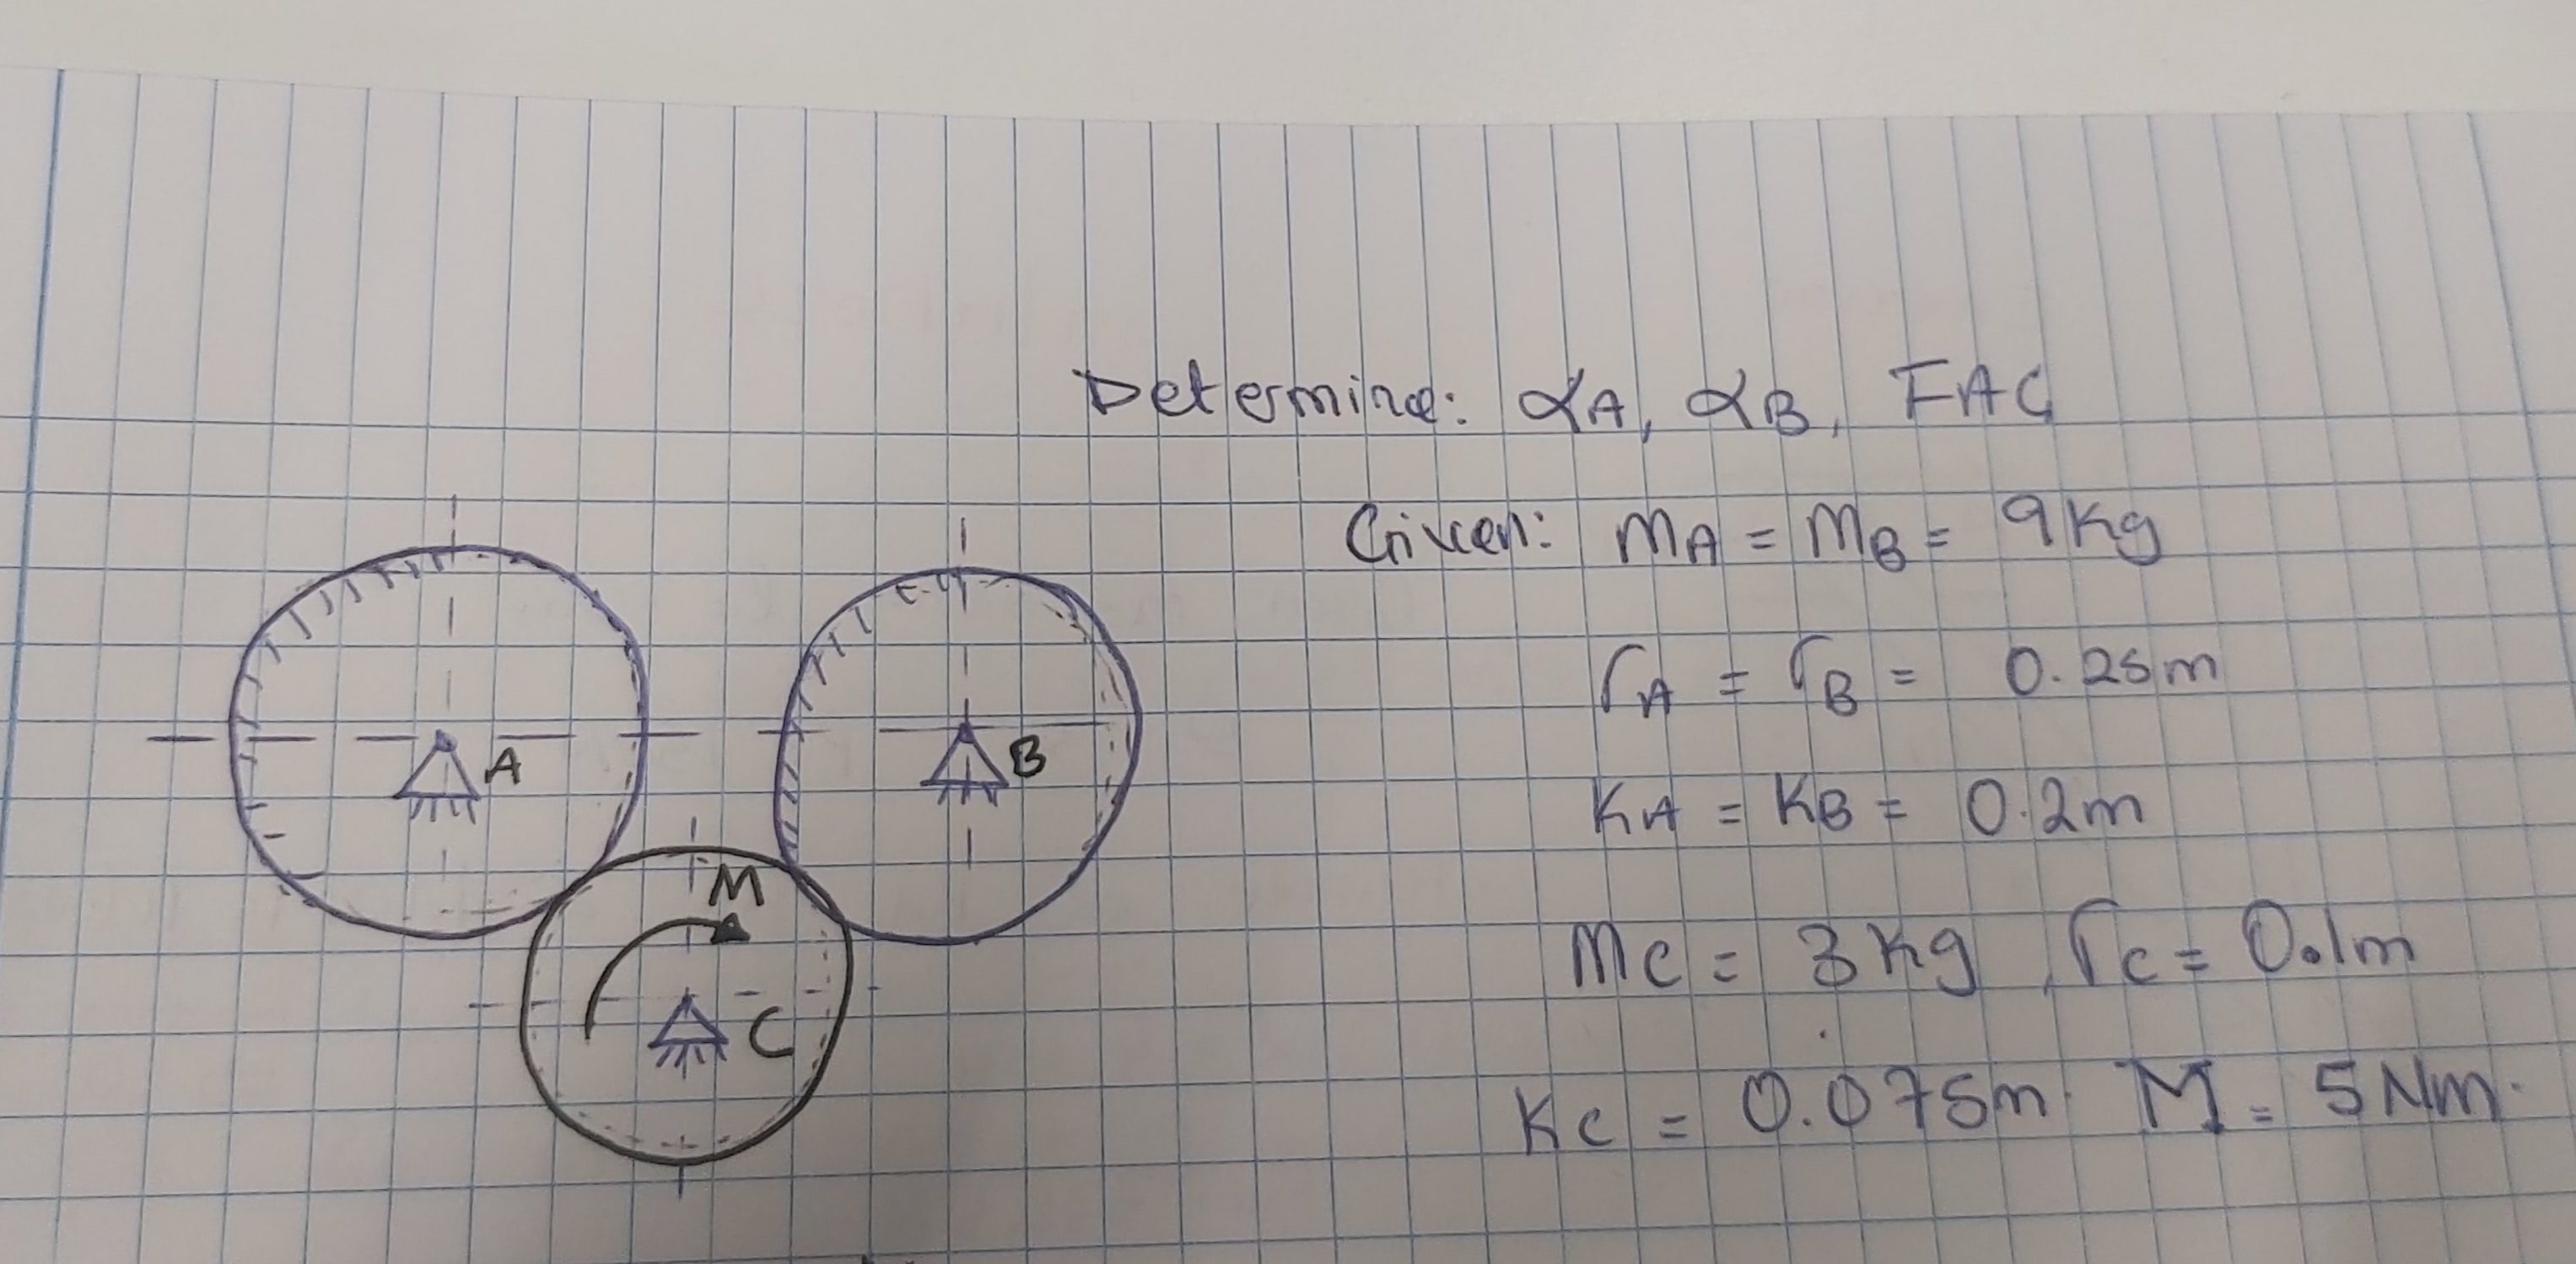 Determine: αA, αB, FAC
Given: mA = mB = 9 Kg
rA = rB = 0.25m
KA = KB = 0.2m
A
B
M
mc = 3 Kg, rc = 0.1m
C
Kc = 0.075m M = 5 Nm.